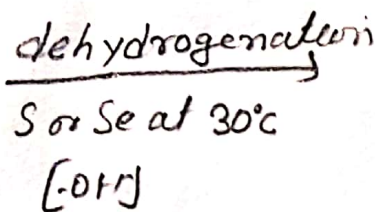 dehydrogenation
S or Se at 30°C